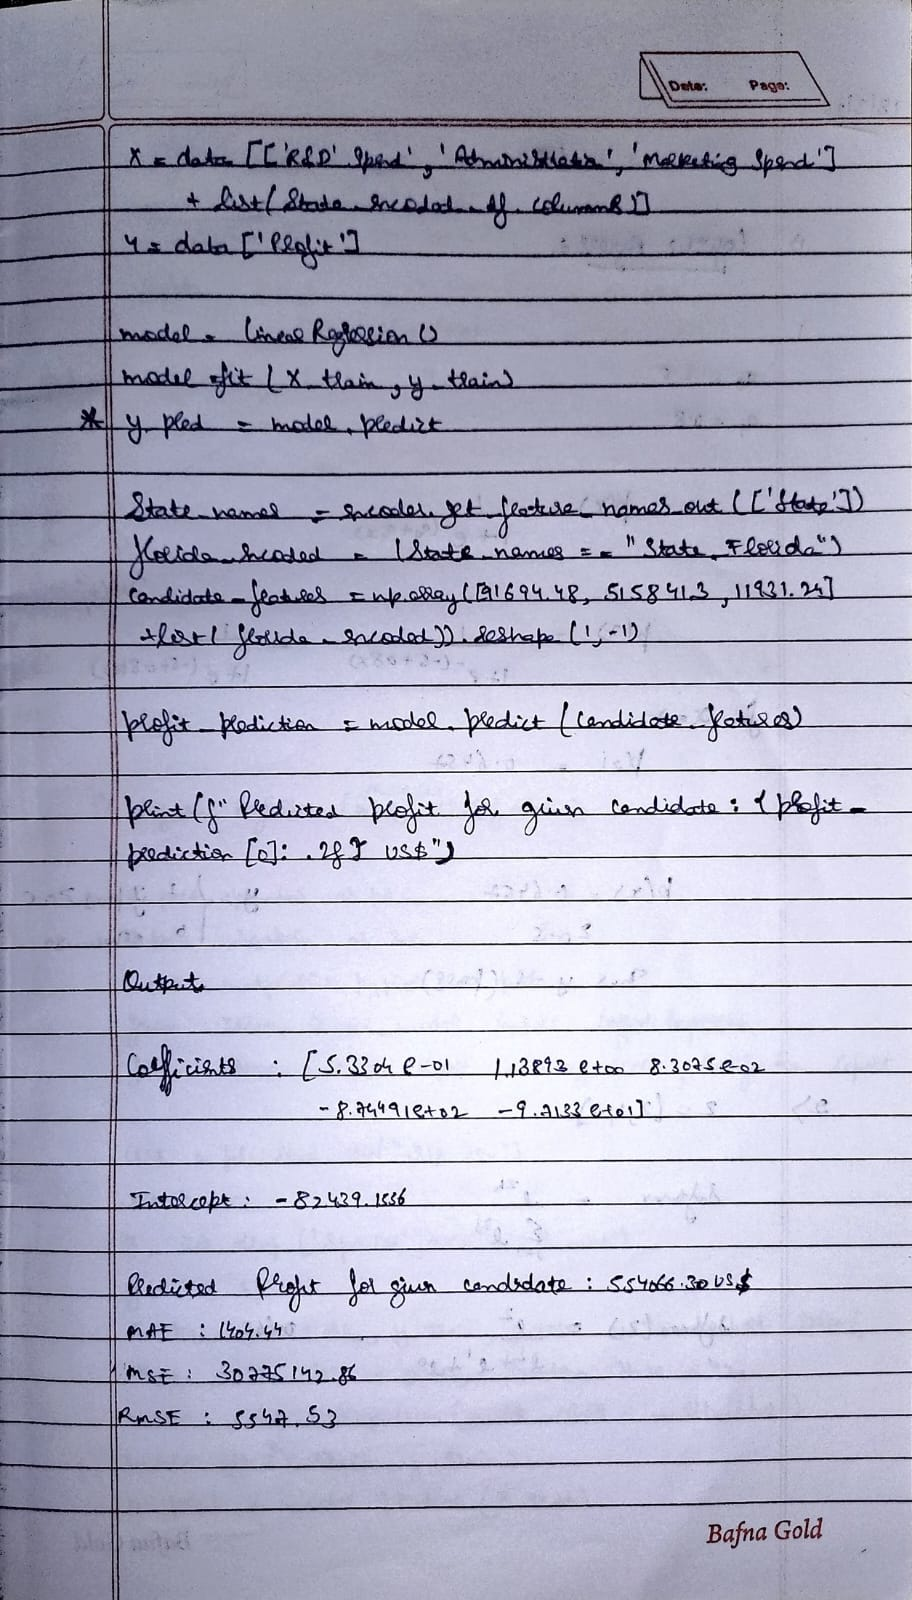 Date: Page:
X = data [['R&D' Spend', 'Administration', 'Marketing Spend']
+ list (State_encoded_df. columns)]
Y = data ['Profit']
model = Linear Regression ()
model .fit (X_train, y_train)
* y_pred = model. predict
State_names = encoder. get_feature_names_out (['State'])
florida_encoded = (State_names == "State_Florida")
Candidate_features = np.array ([91694.48, 515841.3, 11931.24]
+list( florida_encoded)).reshape (1,-1)
profit_prediction = model. predict (candidate_fatures)
print (f" Predicted profit for given candidate : { profit_
prediction [0]: .2f} US$")
Output
Coefficients : [5.3304 e-01 1.13893 e+00 8.3075e-02
-8.74491e+02 -9.7133 e+01]
Intercept : -82439.1556
Predicted Profit for given candidate : 554066.30 US$
MAE : 1404.44
MSE : 30775142.86
RMSE : 5547.53
Bafna Gold